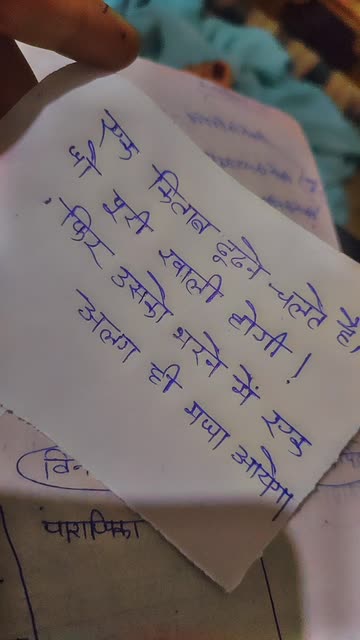 एक किताब ढूढने चलते है।
जो पूरी खाली होगी!
फिर उसको भरने में एक
अलग ही मजा आयेगा
पाराणिका